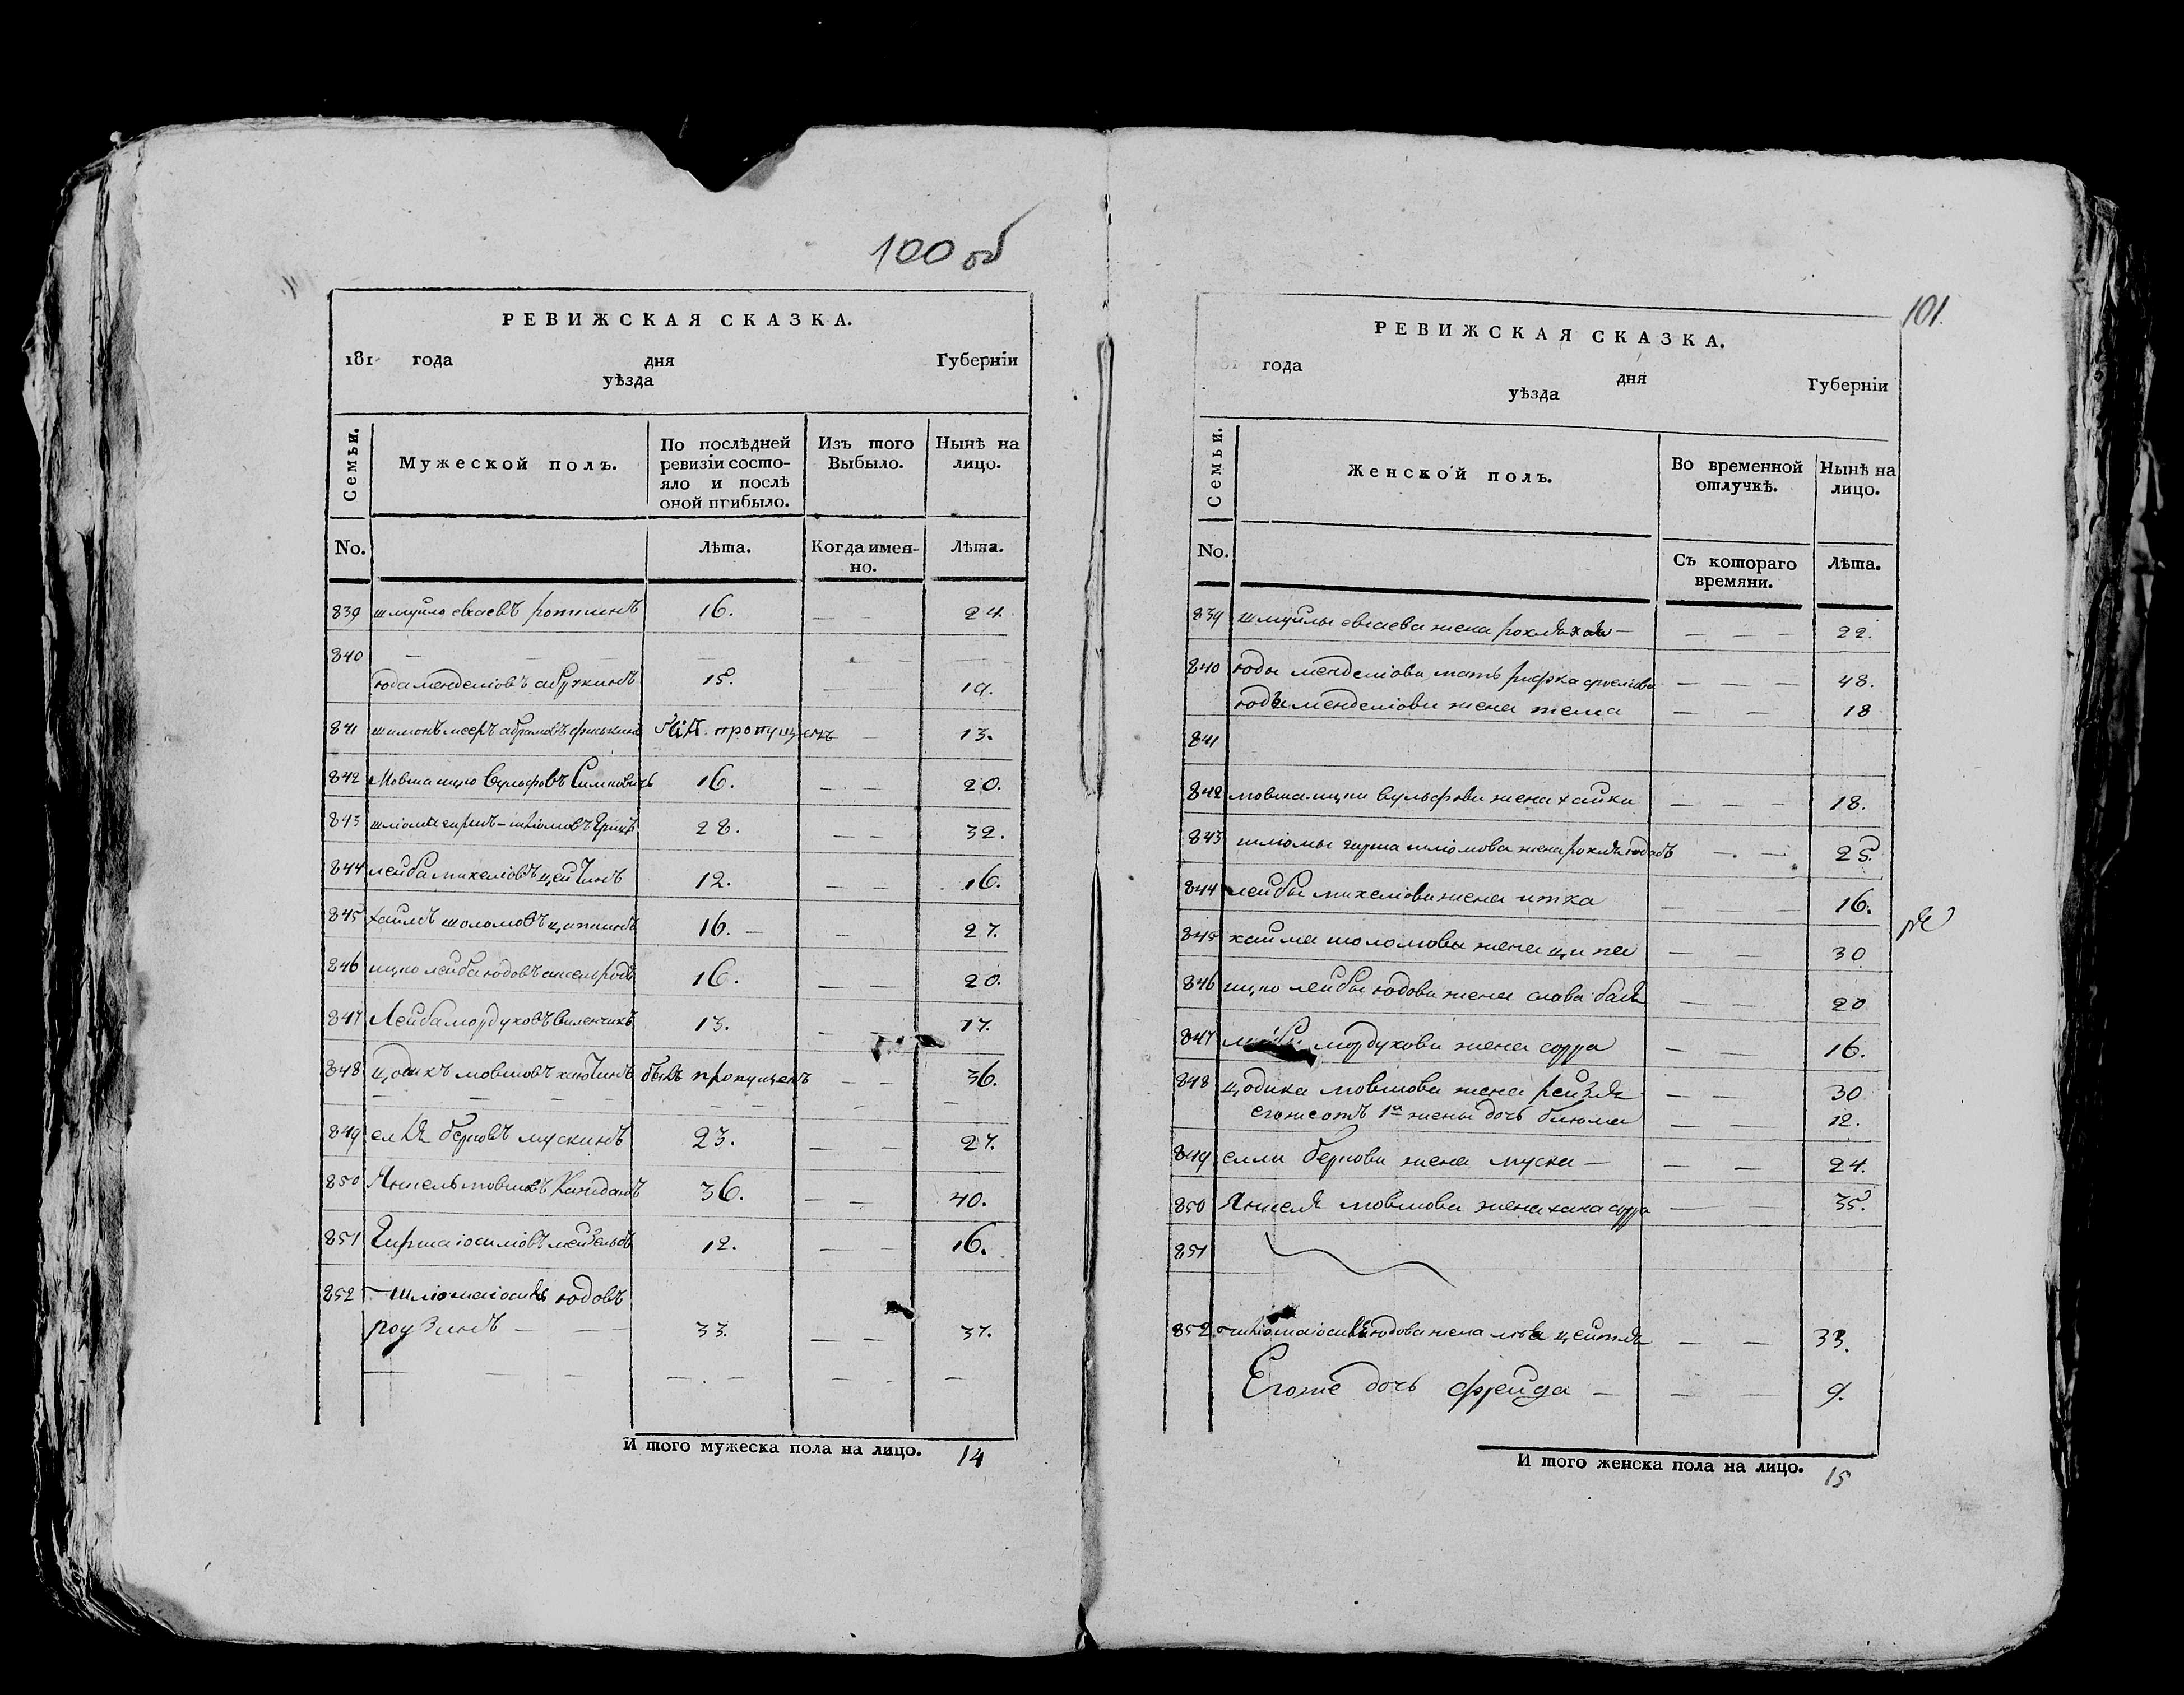 100 об
РЕВИЖСКАЯ СКАЗКА.
181 года дня Губернїи
уѣзда
Семьи. Мужеской полъ. По послѣдней ревизїи состо- Изъ того Выбыло. Нынѣ на лицо.
яло и послѣ
оной прибыло.
No. Лѣта. Когда имен- Лѣта.
но.
839 шмуйло 16. — — 24.
840 — — — — —
юда менделіовъ 15. — — 19.
841 шимонъ мееръ абрамовъ былъ пропущенъ — 13.
842 Мовша ицко Вульфовъ 16. — — 20.
843 шліома гиршъ — шліомовъ 28. — — 32.
844 лейба михеліовъ цейтинъ 12. — — 16.
845 хаимъ шоломовъ 16. — — 27.
846 ицко лейба юдовъ 16. — — 20.
847 Лейба мордуховъ виленчикъ 13. — — 17.
848 цодикъ мовшовъ былъ пропущенъ — — 36.
849 еля берковъ мускинъ 23. — — 27.
850 Янкель мовшовъ 36. — — 40.
851 Гирша іосиліовъ 12. — — 16.
852 шліома іосиль юдовъ
роузинъ — — — 33. — — 37.
И того мужеска пола на лицо. 14
101.
РЕВИЖСКАЯ СКАЗКА.
181 года дня Губернїи
уѣзда
Семьи. Женской полъ. Во временной отлучкѣ. Нынѣ на лицо.
No. Съ котораго времяни. Лѣта.
839 шмуйлы жена рохля хая — — — — 22.
840 юды менделіова мать рифка — — — 48.
юды менделіова жена тема — — 18
841
842 мовша ицки вульфова жена хайка — — — 18.
843 шліомы гирша шліомова жена рохля — — 25.
844 лейбы михеліова жена итка — — — 16.
845 хайма шоломова жена ципа — — 30
846 ицко лейбы юдова жена — — 20
847 мордухова жена сорра — — 16.
848 цодика мовшова жена рейзля — — 30
его же отъ 1й жены дочь блюма — — 12.
849 елли беркова жена муска — — — 24.
850 Янкеля мовшова жена хана сорра — — 35.
851
852 шліома іосиля юдова жена цейтля — — 33.
Егоже дочь фрейда — — — 9.
И того женска пола на лицо. 15